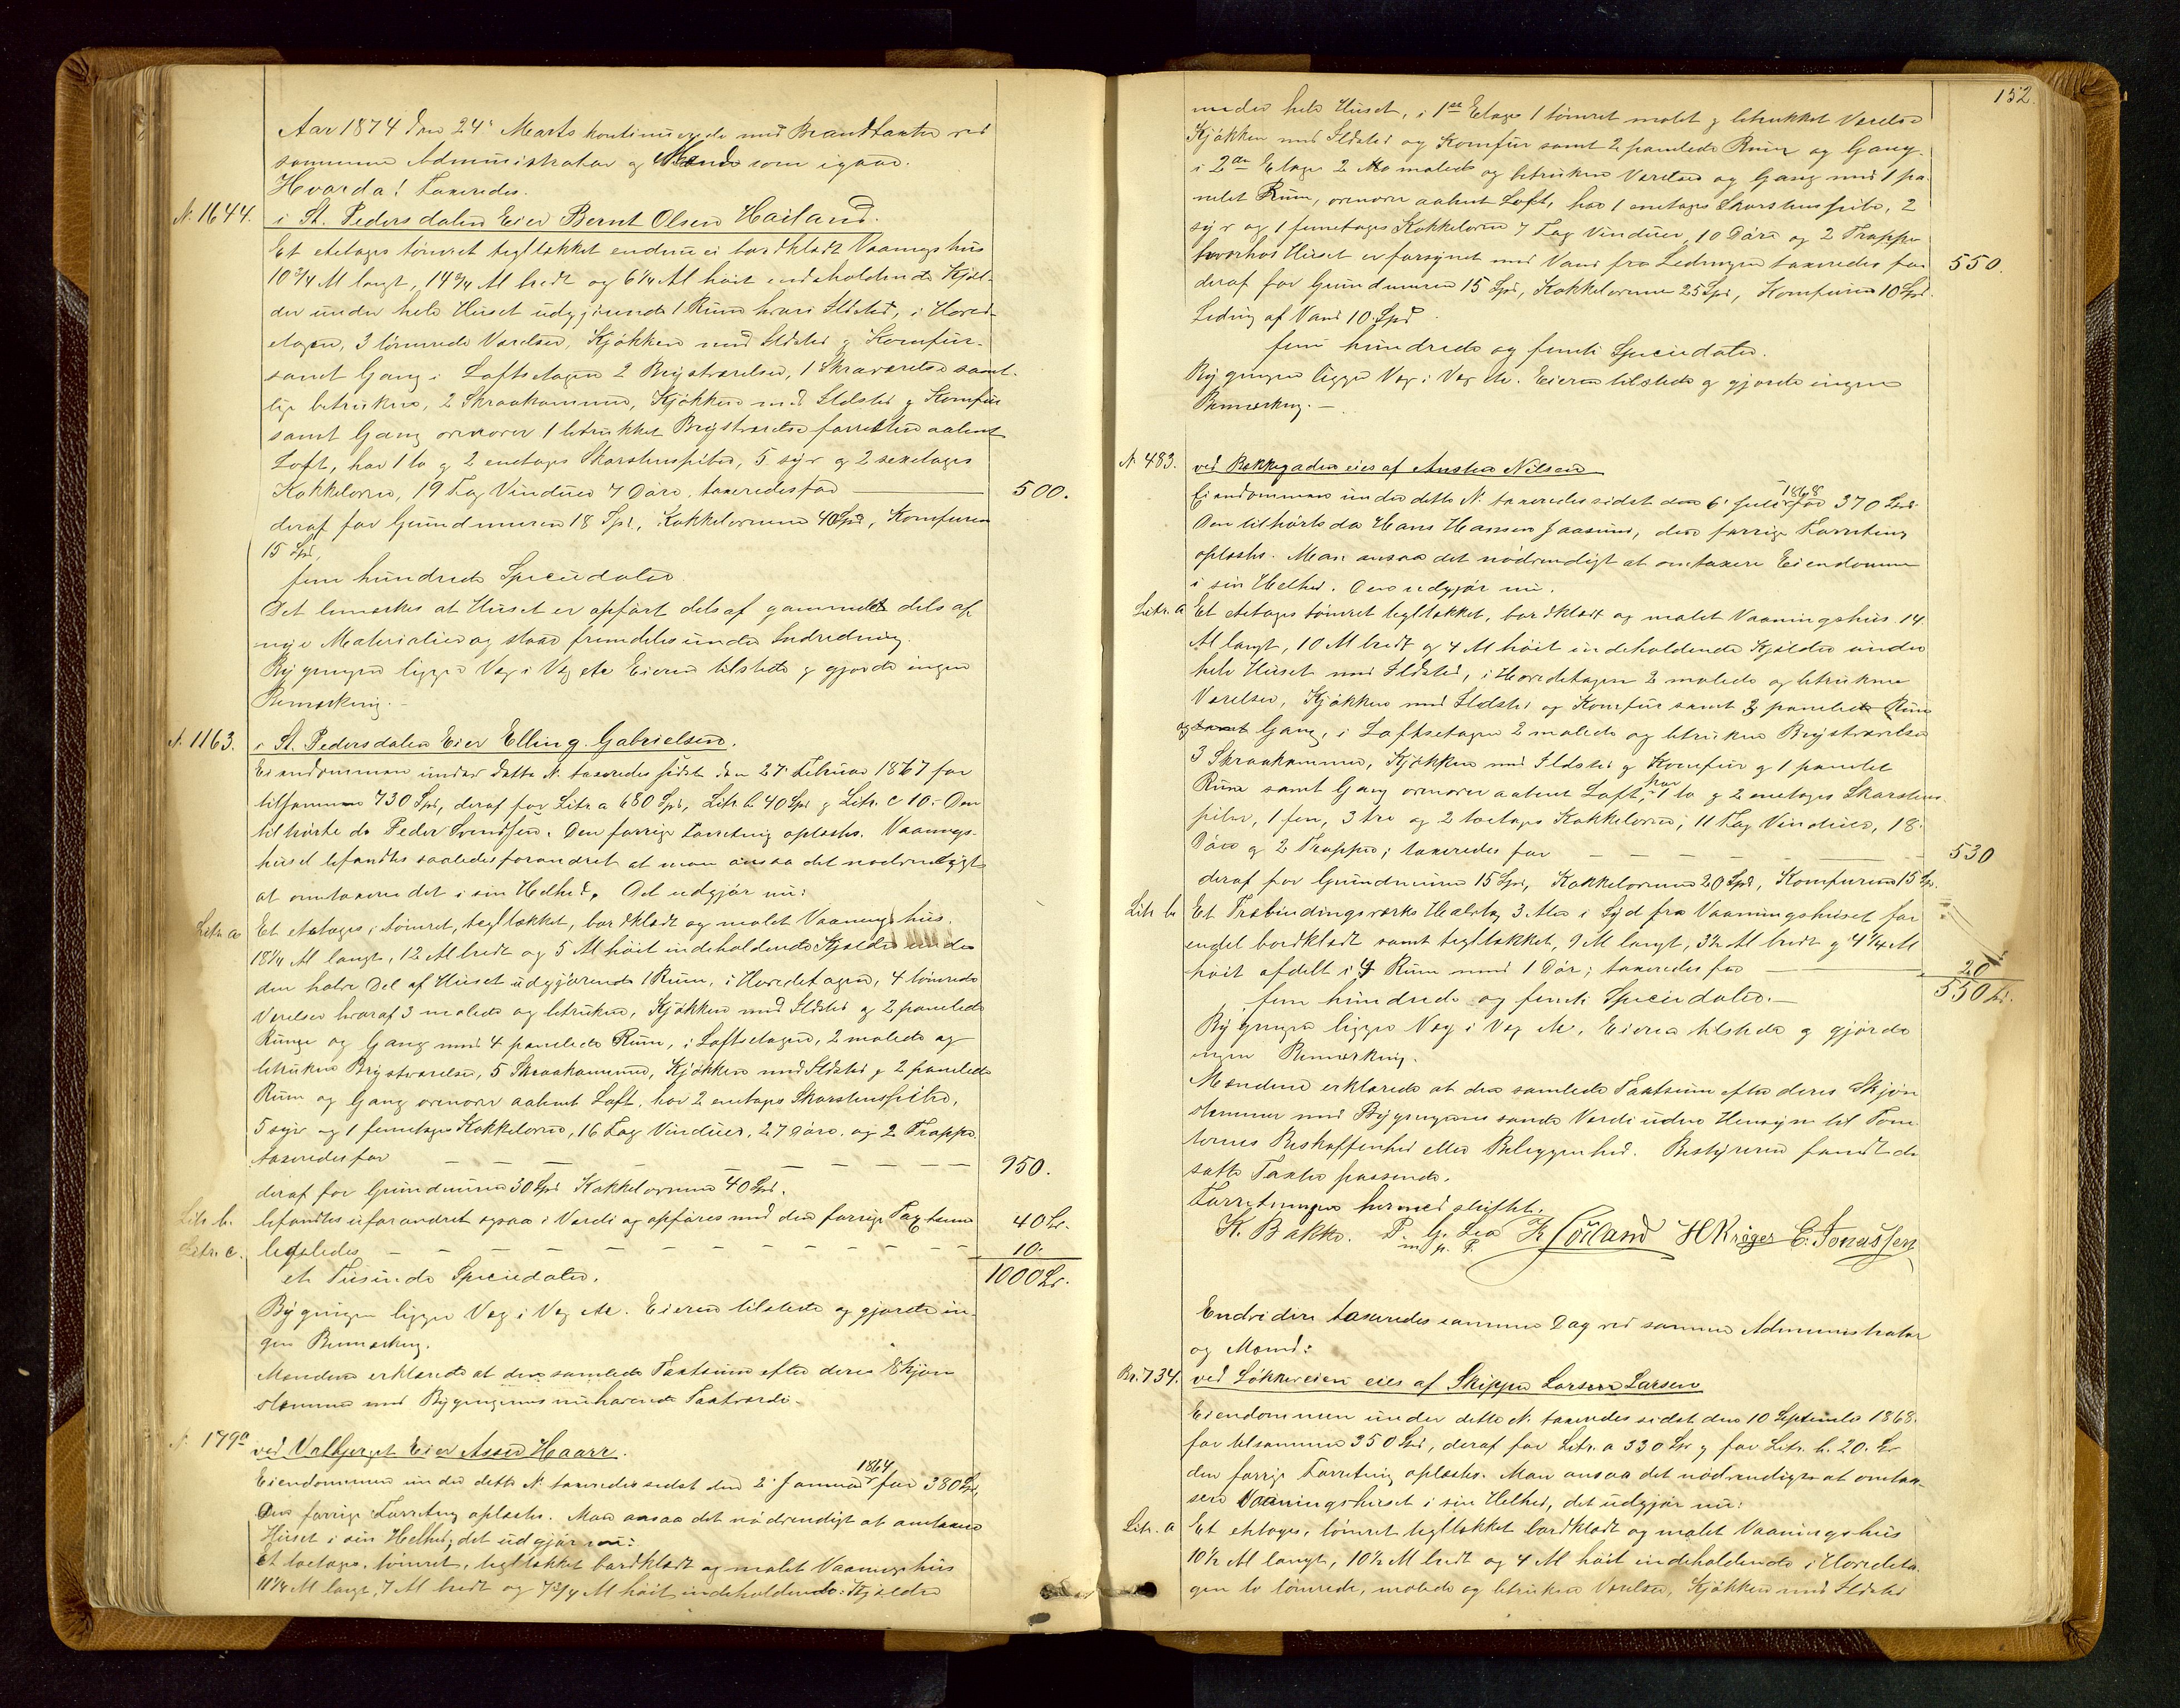 Aar 1874 den 24' Marts kontinueredes med Brandtaxter ved
samme Administrator og Mænd som igaar.
Hvorda! Taxeredes.
N. 1644. i St. Pedersdalen Eier Bernt Olsen Hailand.
Et etetages tömret tegltækket endnu ei bordklædt Vaaningshus
10 3/4 Al langt, 14 3/4 Al bredt og 6 1/4 Al höit indeholdende Kjæl-
der under hele Huset udgjörende 1 Rum hvori Ildsted, i Hoved-
etagen, 3 tömrede Værelser, Kjökken med Ildsted og Komfur
samt Gang i Loftsetagen 2 Brystværelser, 1 Skraaværelse samt-
lige betrukne, 2 Skraakammer, Kjökken med Ildsted og Komfur
samt Gang ovenover 1 betrukket Brystværelse forresten aabent
Loft, har 1 to og 2 enetages Skorstenspiber, 5 syv og 2 sexetages
Kakkelovne, 19 Fag Vinduer 7 Döre, taxeredes for 500.
deraf for Grundmuren 18 Spd, Kakkelovnene 40 Spd, Komfuren
15 Spd,
fem hundrede Speciedaler
Det bemærkes at Huset er opfört dels af gammelt dels af
nye Materialier og staar fremdeles under Indredning.
Bygningen ligger Væg i Væg etc Eieren tilstede og gjorde ingen
Bemærkning.
N. 1163. i St. Pedersdalen Eier Elling Gabrielsen.
Eiendommen under dette N. taxeredes sidst den 27' Februar 1867 for
tilsammen 730 Spd, deraf for Litr. a 680 Spd, Litr. b. 40 Spd og Litr. c 10.- Den
tilhörte da Peder Svendsen. Den forrige Forretning oplæstes. Vaanings-
huset befandtes saaledes forandret at man ansaa det nödvendigt
at omtaxere det i sin Helhed. Det udgjör nu:
Litr. a Et etetages, tömret, tegltækket, bordklædt og malet Vaaningshus
18 1/4 Al langt, 12 Al bredt og 5 Al höit indeholdende Kjælder under
den halve Del af Huset udgjörende 1 Rum, i Hovedetagen, 4 tömrede
Værelser hvoraf 3 malede og betrukne, Kjökken med Ildsted og 2 panelede
Rum og Gang med 4 panelede Rum, i Loftsetagen, 2 malede og
betrukne Brystværelser, 5 Skraakammer, Kjökken med Ildsted og 2 panelede
Rum og Gang ovenover aabent Loft, har 2 enetages Skorstenspiber,
5 syv og 1 femetages Kakkelovne, 16 Fag Vinduer, 27 Döre og 2 Trapper
taxeredes for 950.
deraf for Grundmuren 30 Spd Kakkelovnene 40 Spd.
Litr. b. befandtes uforandret ogsaa i Værdi og opföres med den forrige Taxtsum 40 Sp.
Litr. c. ligeledes 10.
et Tusinde Speciedaler. 1000 Sp.
Bygningen ligger Væg i Væg etc. Eieren tilstede og gjorde in-
gen Bemærkning.
Mændene erklærede at den samlede Taxtsum efter deres Skjön
stemmer med Bygningernes nuhavende Taxtværdi.
N. 179a ved Valbjerget Eier Asser Haarr.
Eiendommen under dette N. taxeredes sidst den 2' Januar 1864 for 380 Spd,
Den forrige Forretning oplæstes. Man ansaa det nödvendigt at omtaxere
Huset i sin Helhed, det udgjör nu:
Et toetages, tömret, tegltækket bordklædt og malet Vaaningshus
11 1/4 Al langt, 7 Al bredt og 7 3/4 Al höit indeholdende: Kjælder
152.
under hele Huset, i 1ste Etage 1 tömret malet og betrukket Værelse
Kjökken med Ildsted og Komfur samt 2 panelede Rum og Gang.
i 2den Etage 2 malede og betrukne Værelser og Gang med 1 pa-
nelet Rum, ovenover aabent Loft, har 1 enetages Skorstenspibe, 2
syv og 1 femetages Kakkelovne 7 Fag Vinduer, 10 Döre og 2 Trapper
hvorhos Huset er forsynet med Vand fra Ledningen taxeredes for 550.
deraf for Grundmuren 15 Spd, Kakkelovnene 25 Spd, Komfuren 10 Spd.
Ledning af Vand 10 Spd
fem hundrede og femti Speciedaler.
Bygningen ligger Væg i Væg etc. Eieren tilstede og gjorde ingen
Bemærkning.
N. 483. ved Bakkegaden eies af Nilsen
Eiendommen under dette N. taxeredes sidst den 6' Juli 1868 for 370 Spd.
Den tilhörte da Hans Hansen Jaasund, den forrige Forretning
oplæstes. Man ansaa det nödvendigt at omtaxere Eiendommen
i sin Helhed. Den udgjör nu.
Litr. a Et etetages tömret tegltækket, bordklædt og malet Vaaningshus 14
Al langt, 10 Al bredt og 4 Al höit indeholdende Kjælder under
hele Huset med Ildsted, i Hovedetagen 2 malede og betrukne
Værelser, Kjökken med Ildsted og Komfur samt 3 panelede Rum
og Gang, i Loftsetagen 2 malede og betrukne Brystværelser
3 Skraakammer, Kjökken med Ildsted og Komfur og 1 panelet
Rum samt Gang ovenover aabent Loft, har 1 to og 2 enetages Skorstens-
piber, 1 fem, 3 tre og 2 toetages Kakkelovne, 11 Fag Vinduer, 18
Döre og 2 Trapper; taxeredes for 530
deraf for Grundmuren 15 Spd, Kakkelovnene 20 Spd, Komfuren 15 Sp.
Litr. b Et Træbindingsværks Halvtag 3 Alen i Syd fra Vaaningshuset for
endel bordklædt samt tegltækket, 9 Al langt, 3 1/2 Al bredt og 4 1/4 Al
höit afdelt i 4 Rum med 1 Dör; taxeredes for 20
fem hundrede og femti Speciedaler. 550 Sp.
Bygningen ligger Væg i Væg etc. Eieren tilstede og gjorde
ingen Bemærkning.
Mændene erklærede at den samlede Taxtsum efter deres Skjön
stemmer med Bygningernes sande Værdi uden Hensyn til Tom-
ternes Beskaffenhed eller Beliggenhed. Bestyreren fandt de
satte Taxter passende.
Forretningen hermed sluttet.
K. Bakke. P. G. Lea m. p. P. Söiland H Krøger C. Jonassen
Endvidere taxeredes samme Dag ved samme Administrator
og Mænd:
Br. 734. ved Lökkeveien eies af Skipper Larsen Larsen
Eiendommen under dette N. taxeredes sidst den 10 September 1868.
for tilsammen 350 Spd, deraf for Litr. a 330 Spd og for Litr. b. 20. Sp
den forrige Forretning oplæstes. Man ansaa det nödvendigt at omtax-
ere Vaaningshuset i sin Helhed, det udgjör nu:
Litr. a Et etetages, tömret tegltækket bordklædt og malet Vaaningshus
10 1/2 Al langt, 10 1/2 Al bredt og 4 Al höit indeholdende i Hovedeta-
gen to tömrede, malede og betrukne Værelser, Kjökken med Ildsted